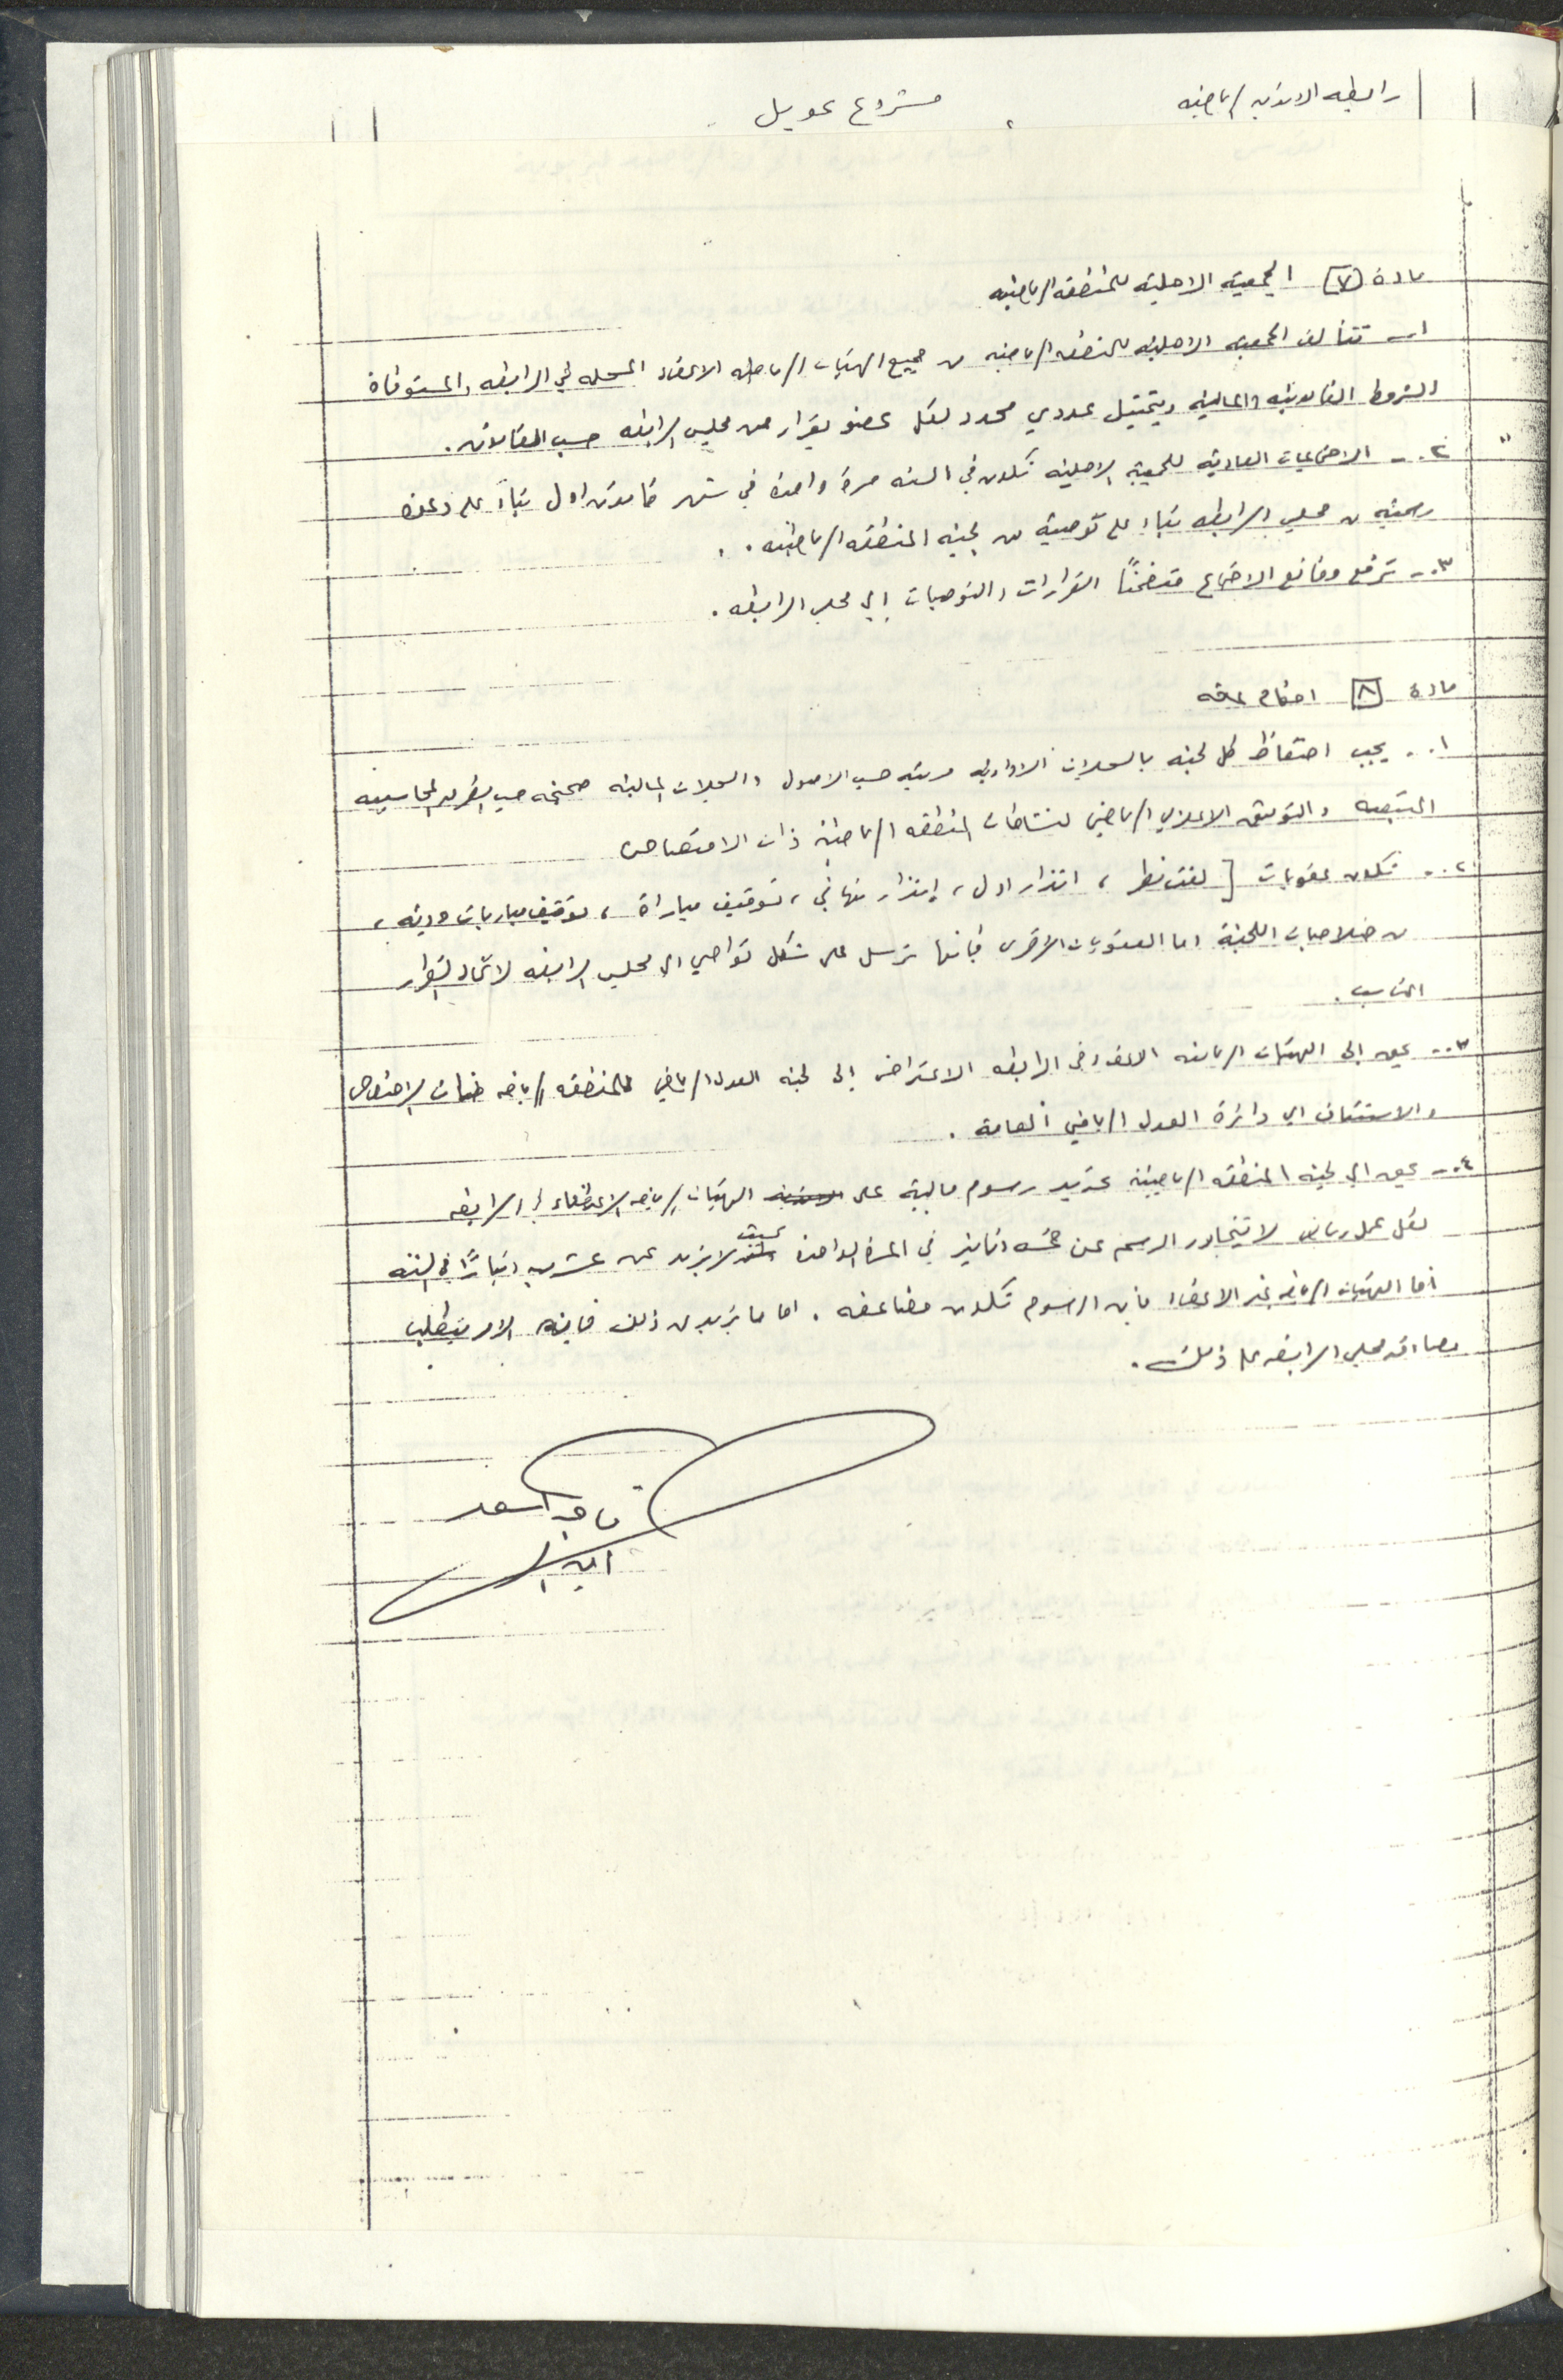 رابطه الاندية الرياضيه
مشروع عويل
مادة [٧] الجمعية الاهلية للمنطقة الرياضيه
١ـ تتألف الجمعيه الاهلية للمنطقه الرياضيه من جميع الهيئات الرياضيه الاعضاء المسجله في الرابطه والمستوفاة
الشروط القانونية والمالية وبتمثيل عددي محدد لكل عضو بقرار من مجلس الرابطه حسب القانون.
٢ـ الاجتماعات العادية للجمعية الاهلية تكون في السنه مرة واحدة في شهر كانون اول بناءً على دعوة
رسمية من مجلس الرابطه بناء على توصية من لجنة المنطقه الرياضيه.
٣ـ ترفع وقائع الاجتماع متضمناً القرارات والتوصيات إلى مجلس الرابطه.
مادة [٨] احكام عامه
١ـ يجب احتفاظ كل لجنة بالسجلات الادارية مرتبه حسب الاصول والسجلات المالية صحيحه حسب المحاسبيه
المتبعه والتوثيق الاعلامي الرياضي لنشاطات المنطقه الرياضية ذات الاختصاص
٢ـ تكون عقوبات [لفت نظر، انذار اول، إنذار نهائي، توقيف مباراة، توقيف مباريات ودية،
من صلاحيات اللجنة اما العقوبات الأخرى فإنها ترسل على شكل تواصي الى مجلس الرابطه لاتخاذ القرار
المناسب.
٣ـ يحق إلى الهيئات الرياضيه الاعضاء في الرابطه الاعتراض إلى لجنة العدل الرياضي للمنطقه الرياضيه الاختصاص
والاستئناف الى دائرة العدل الرياضي العامة.
٤ـ يحق الى لجنة المنطقه الرياضية تحديد رسوم مالية على الهيئات الرياضيه الاعضاء في الرابطه
لكل عمل رياضي لا يتجاوز الرسم عن خمسه دنانير في المرة الواحدة بحيث لا يزيد عن عشرين ديناراً في السنة
أما الهيئات الرياضيه غير الاعضاء فأن الرسوم تكون مضاعفه. اما ما يزيد من ذلك فإن الامر يتطلب
مصادقه مجلس الرابطه على ذلك.
ماجد اسعد